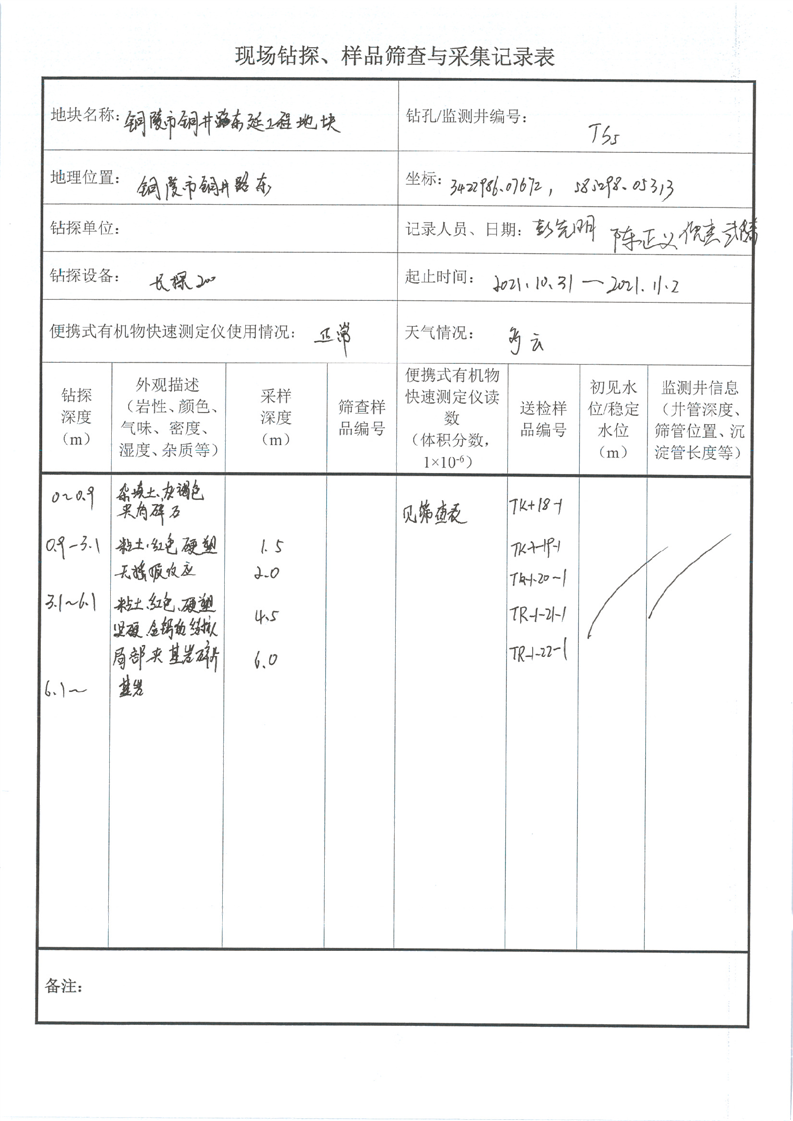 现场钻探、样品筛查与采集记录表
地块名称：铜陵市铜井路东延工程地块
钻孔/监测井编号：
TS5
地理位置：铜陵市铜井路东
坐标：3422986.07672，585298.05313
钻探单位：
记录人员、日期：彭先明 陈正义
钻探设备：长探20
起止时间：2021.10.31—2021.11.2
便携式有机物快速测定仪使用情况：正常
天气情况：多云
钻探
深度
（m）
外观描述
（岩性、颜色、
气味、密度、
湿度、杂质等）
采样
深度
（m）
筛查样
品编号
便携式有机物
快速测定仪读
数
（体积分数，
1×10⁻⁶）
送检样
品编号
初见水
位/稳定
水位
（m）
监测井信息
（井管深度、
筛管位置、沉
淀管长度等）
0~0.9
杂填土、灰褐色
夹有碎石
见筛查表
0.9—3.1
粘土.红色.硬塑
1.5
2.0
3.1~6.1
粘土.红色.硬塑
坚硬
4.5
局部夹基岩碎片
6.0
6.1~
基岩
TR-1-21-1
TR-1-22-1
备注：